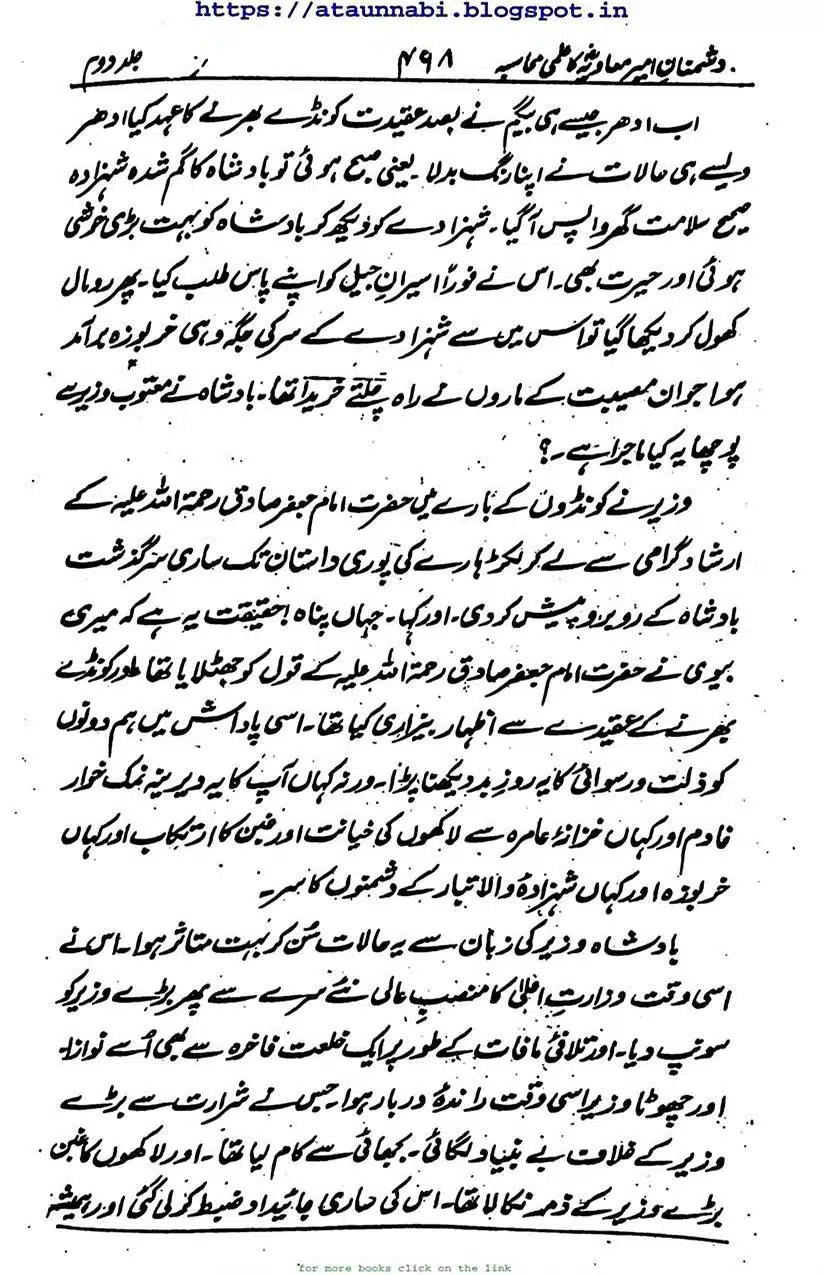 https://ataunnabi.blogspot.in
دشمنانِ امیر معاویہؓ کا علمی محاسبہ ۴۹۸ جلد دوم
اب ادھر جیسے ہی بیگم نے بصد عقیدت کونڈے بھرنے کا عہد کیا ادھر
ویسے ہی حالات نے اپنا رنگ بدلا۔ یعنی صبح ہوئی تو بادشاہ کا گم شدہ شہزادہ
صحیح سلامت گھر واپس آگیا۔ شہزادے کو دیکھ کر بادشاہ کو بہت بڑی خوشی
ہوئی اور حیرت بھی۔ اس نے فوراً اسیرانِ جیل کو اپنے پاس طلب کیا۔ پھر رومال
کھول کر دیکھا گیا تو اس میں سے شہزادے کے سر کی جگہ وہی خربوزہ برآمد
ہوا جو ان مصیبت کے ماروں نے راہ چلتے خریدا تھا۔ بادشاہ نے معتوب وزیر سے
پوچھا یہ کیا ماجرا ہے۔؟
وزیر نے کونڈوں کے بارے میں حضرت امام جعفر صادق رحمۃ اللہ علیہ کے
ارشاد گرامی سے لے کر لکڑہارے کی پوری داستان تک ساری سرگذشت
بادشاہ کے روبرو پیش کر دی۔ اور کہا۔ جہاں پناہ! حقیقت یہ ہے کہ میری
بیوی نے حضرت امام جعفر صادق رحمۃ اللہ علیہ کے قول کو جھٹلایا تھا اور کونڈے
بھرنے کے عقیدے سے اظہار بیزاری کیا تھا۔ اسی پاداش میں ہم دونوں
کو ذلت و رسوائی کا یہ روزِ بد دیکھنا پڑا۔ ورنہ کہاں آپ کا یہ دیرینہ نمک خوار
خادم اور کہاں خزانۂ عامرہ سے لاکھوں کی خیانت اور غبن کا ارتکاب اور کہاں
خربوزہ اور کہاں شہزادۂ والا تبار کے دشمنوں کا سر۔
بادشاہ وزیر کی زبان سے یہ حالات سُن کر بہت متاثر ہوا۔ اس نے
اسی وقت وزارتِ اعلیٰ کا منصبِ عالی نئے سرے سے پھر بڑے وزیر کو
سونپ دیا۔ اور تلافئ مافات کے طور پر ایک خلعت فاخرہ سے بھی اُسے نوازا۔
اور چھوٹا وزیر اسی وقت راندۂ دربار ہوا۔ جس نے شرارت سے بڑے
وزیر کے خلاف بے بنیاد لگائی۔ بجھائی سے کام لیا تھا۔ اور لاکھوں کا غبن
بڑے وزیر کے ذمہ نکالا تھا۔ اس کی ساری جائیداد ضبط کر لی گئی اور ہمیشہ
for more books click on the link